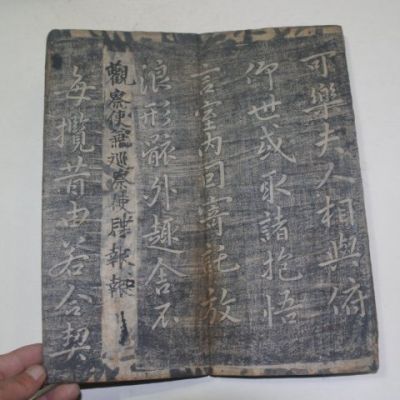 可樂夫人相與俯
仰世或取諸抱悟
言室內寄託放
浪形骸外趣舍不
觀察使兼巡察使報報
每攬昔由若合契